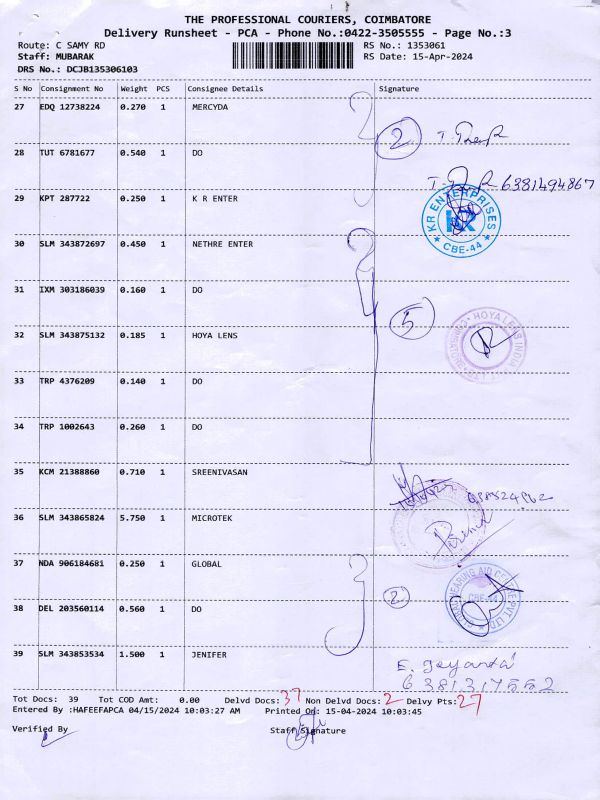 THE PROFESSIONAL COURIERS, COIMBATORE
Delivery Runsheet - PCA - Phone No.:0422-3505555 - Page No.:3
Route: C SAMY RD RS No.: 1353061
Staff: MUBARAK RS Date: 15-Apr-2024
DRS No.: DCJB135306103
S No Consignment No Weight PCS Consignee Details Signature
27 EDQ 12738224 0.270 1 MERCYDA
2
28 TUT 6781677 0.540 1 DO
6381494867
29 KPT 287722 0.250 1 K R ENTER
KR ENTERPRISES
KR
★ CBE-44 ★
30 SLM 343872697 0.450 1 NETHRE ENTER
31 IXM 303186039 0.160 1 DO
5
32 SLM 343875132 0.185 1 HOYA LENS
HOYA LENS INDIA
33 TRP 4376209 0.140 1 DO
34 TRP 1002643 0.260 1 DO
35 KCM 21388860 0.710 1 SREENIVASAN
36 SLM 343865824 5.750 1 MICROTEK
37 NDA 906184681 0.250 1 GLOBAL
2
HEARING AID
CBE-44
PVT LTD
38 DEL 203560114 0.560 1 DO
39 SLM 343853534 1.500 1 JENIFER
E. Jeyanthi
6381317552
Tot Docs: 39 Tot COD Amt: 0.00 Delvd Docs: 37 Non Delvd Docs: 2 Delvy Pts: 27
Entered By :HAFEEFAPCA 04/15/2024 10:03:27 AM Printed On: 15-04-2024 10:03:45
Verified By Staff Signature